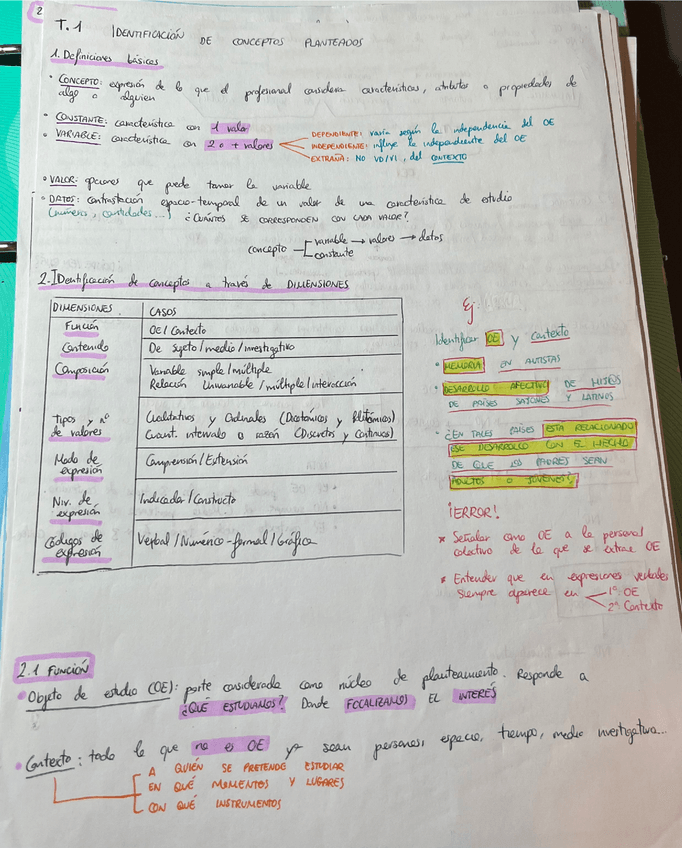 2
T.1 IDENTIFICACIÓN DE CONCEPTOS PLANTEADOS
1. Definiciones básicas
• CONCEPTO: expresión de lo que el profesional considera características, atributos o propiedades de
algo o alguien
• CONSTANTE: característica con 1 valor
• VARIABLE: característica con 2 o + valores
DEPENDIENTE: varía según la independencia del OE
INDEPENDIENTE: influye la independiente del OE
EXTRAÑA: NO VD/VI, del CONTEXTO
• VALOR: opciones que puede tomar la variable
• DATOS: contrastación espacio-temporal de un valor de una característica de estudio
(números, cantidades...) ¿CUÁNTOS SE CORRESPONDEN CON CADA VALOR?
concepto variable → valores → datos
constante
2. Identificación de conceptos a través de DIMENSIONES
DIMENSIONES CASOS
Función OE/Contexto
Contenido De sujeto/medio/investigativo
Composición Variable simple/múltiple
Relación Univariable/múltiple/interacción
Tipos y nº de valores Cualitativos y Ordinales (Dicotómicos y Politómicos)
Cuant. intervalo o razón (Discretos y Continuos)
Modo de expresión Comprensión/Extensión
Niv. de expresión Indicador/Constructo
Códigos de expresión Verbal/Numérico-formal/Gráfica
Ej:
Identificar OE y Contexto
• MEMORIA EN AUTISTAS
• DESARROLLO AFECTIVO DE HIJOS
DE PAÍSES SAJONES Y LATINOS
• ¿EN TALES PAÍSES ESTÁ RELACIONADO
ESE DESARROLLO CON EL HECHO
DE QUE LOS PADRES SEAN
ADULTOS O JÓVENES?
¡ERROR!
* Señalar como OE a la persona/
colectivo de la que se extrae OE
* Entender que en expresiones verbales
siempre aparece en 1º OE
2º Contexto
2.1 FUNCIÓN
• Objeto de estudio (OE): parte considerada como núcleo de planteamiento. Responde a
¿QUÉ ESTUDIAMOS? Donde FOCALIZAMOS EL INTERÉS
• Contexto: todo lo que no es OE ya sean personas, espacio, tiempo, medio investigativo...
A QUIÉN SE PRETENDE ESTUDIAR
EN QUÉ MOMENTOS Y LUGARES
CON QUÉ INSTRUMENTOS